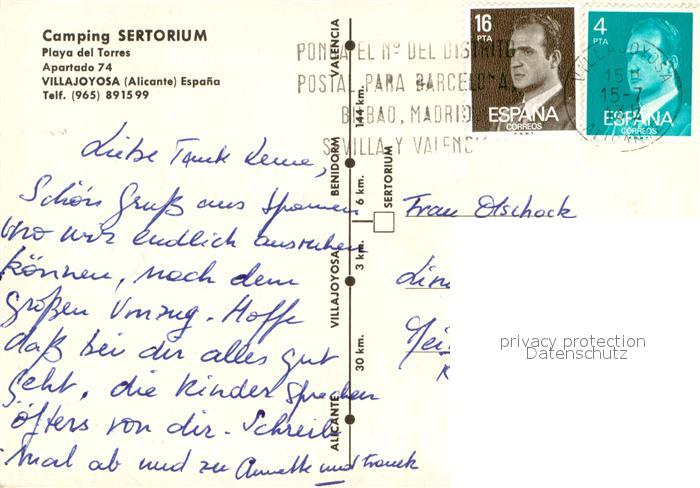 Camping SERTORIUM
Playa del Torres
Apartado 74
VILLAJOYOSA (Alicante) España
Telf. (965) 891599
16
PTA
ESPAÑA
CORREOS
4
PTA
ESPAÑA
CORREOS
PONGA EL Nº DEL DISTRITO
POSTAL PARA BARCELONA,
BILBAO, MADRID,
SEVILLA Y VALENCIA
VILLAJOYOSA
15-7
VALENCIA
144 km.
BENIDORM
6 km.
SERTORIUM
3 km.
VILLAJOYOSA
30 km.
ALICANTE
Liebe Tante
Schön Gruß aus Spanien
wo wir endlich ausruhen
können, nach dem
großen Umzug. Hoffe
daß bei dir alles gut
geht, die Kinder sprechen
öfters von dir. Schreib
mal ab und zu Annette und Franck
Frau Olschock
privacy protection
Datenschutz